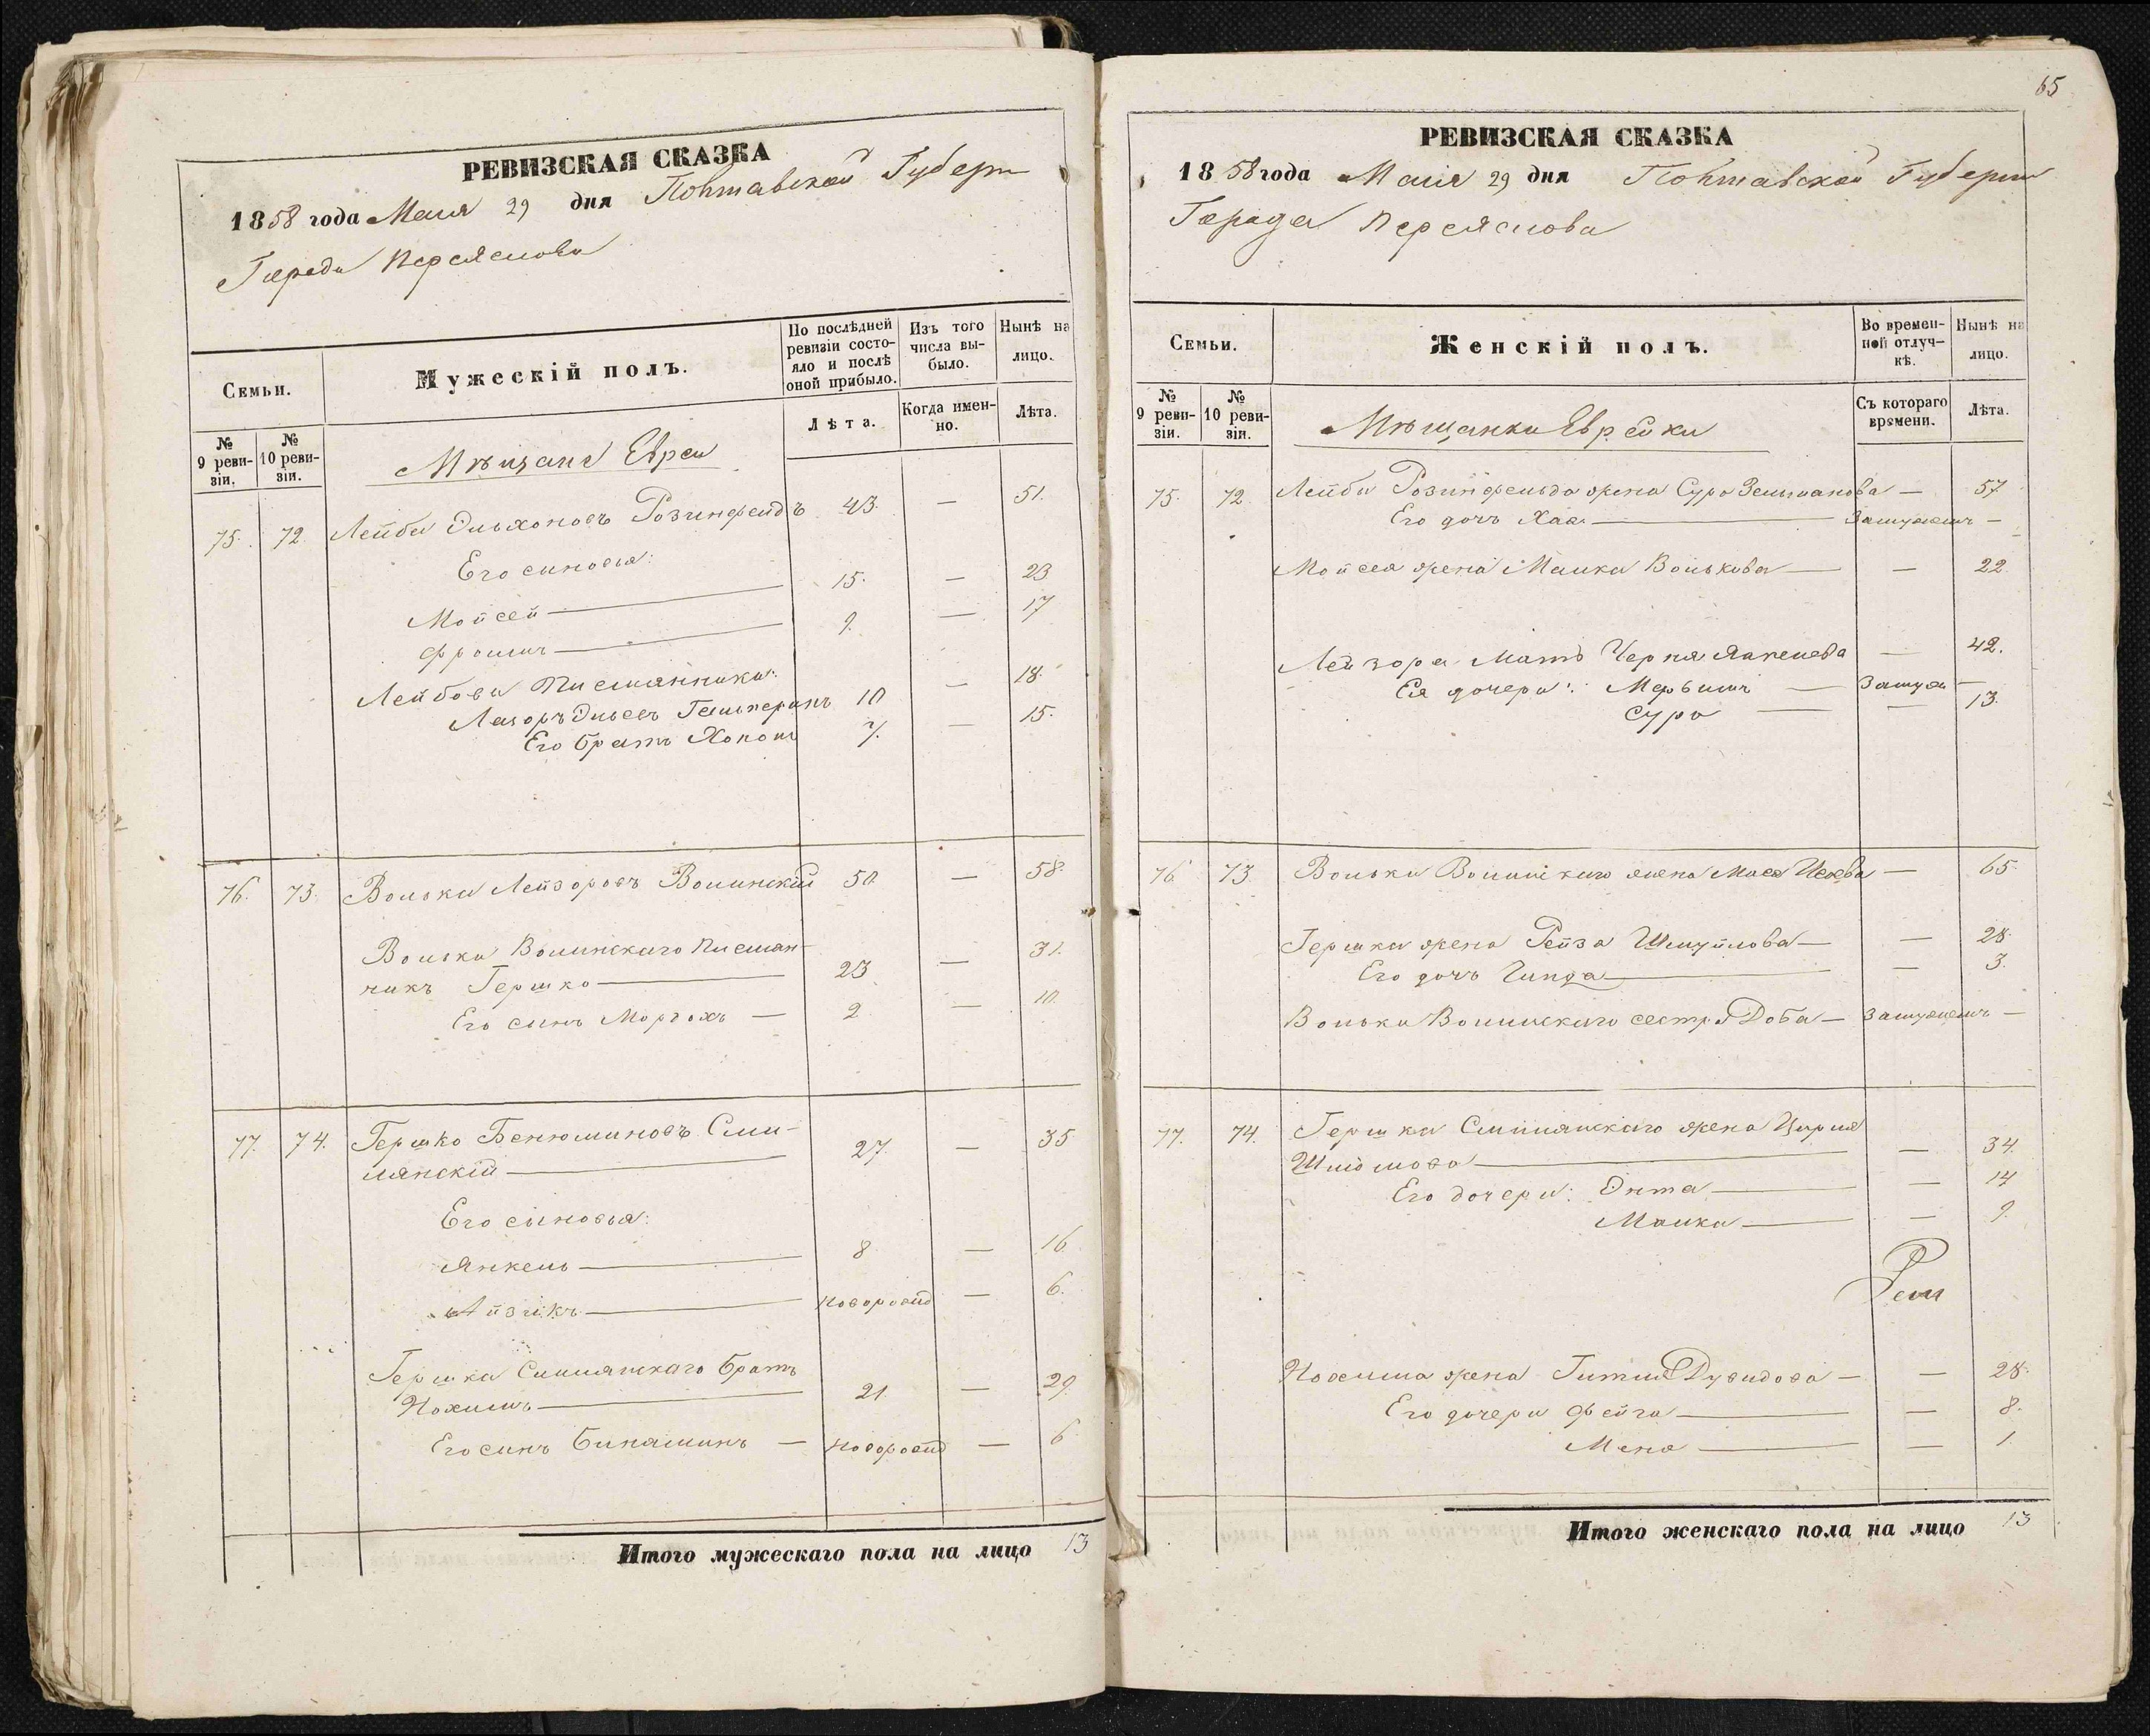 РЕВИЗСКАЯ СКАЗКА
1858 года Маия 29 дня Полтавской Губерн
Города Переяслова
Семьи.
Мужескій полъ.
По послѣдней ревизіи состояло и послѣ оной прибыло.
Изъ того числа выбыло.
Нынѣ на лицо.
№ 9 ревизіи.
№ 10 ревизіи.
Лѣта.
Когда именно.
Лѣта.
Мѣщане Евреи
75. 72. Лейба Эльхоновъ Розинфельдъ 43. — 51.
Его сыновья:
Мойсей — 15. — 23
Фроимъ — 9. — 17
Лейбови племянники:
Лазоръ Эльевъ Гальперинъ 10 — 18.
Его братъ Хононъ 7. — 15.
76. 73. Волька Лейзоровъ Волинскій 50 — 58.
Волька Волинскаго племян-
никъ Гершко — 23 — 31.
Его сынъ Мортохъ — 2 — 10.
77. 74. Гершко Бенюминовъ Сми-
лянскій — 27. — 35
Его сыновья:
Янкель — 8 — 16
Айзикъ — новорожд — 6.
Гершка Смилянскаго братъ
Нохимъ — 21 — 29
Его сынъ Биняминъ — новорожд — 6
Итого мужескаго пола на лицо 13
65
РЕВИЗСКАЯ СКАЗКА
1858 года Маия 29 дня Полтавской Губерни
Города Переяслова
Семьи.
Женскій полъ.
Во временной отлучкѣ.
Нынѣ на лицо.
№ 9 ревизіи.
№ 10 ревизіи.
Съ котораго времени.
Лѣта.
Мѣщанки Еврейки
75. 72 Лейби Розинфельда жена Сура Зельманова — 57
Его дочь Хая — Замужемъ —
Мойсея жена Малка Волькова — — 22
Лейзора мать Черня Янкелева — 42.
Ея дочери: Мерьимъ — Замуж —
Сура — — 13.
76. 73 Волька Волинскаго жена Мася — 65.
Гершка жена Рейза Шмуйлова — — 28.
Его дочь Гинда — — 3.
Волька Волинскаго сестра Доба — Замужемъ —
77. 74. Гершка Смилянскаго жена Цирля
Шліомова — — 34.
Его дочери: Энта — — 14
Малка — — 9.
Нохима жена Гитля Дувидова — — 28.
Его дочери Фейга — — 8.
Мена — — 1.
Итого женскаго пола на лицо 13